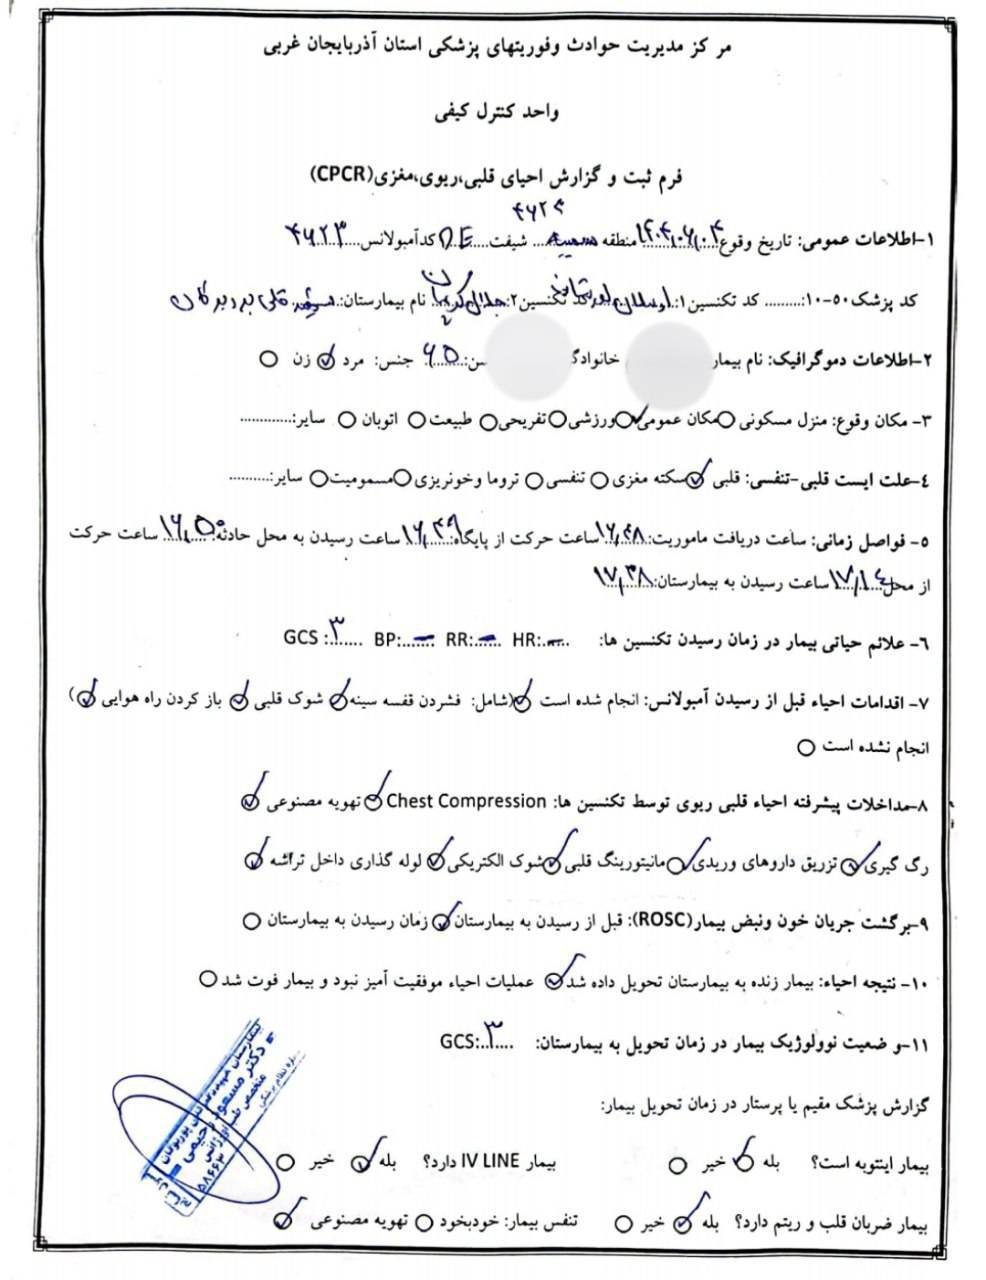 مرکز مدیریت حوادث وفوریتهای پزشکی استان آذربایجان غربی
واحد کنترل کیفی
فرم ثبت و گزارش احیای قلبی،ریوی،مغزی(CPCR)
۴۶۲۳
۱-اطلاعات عمومی: تاریخ وقوع ۱۴۰۴/۰۶/۰۴ منطقه شیفت DE کدآمبولانس ۴۶۲۳
کد پزشک ۵۰-۱۰:......... کد تکنسین۱: کد تکنسین۲: نام بیمارستان: قلی
۲-اطلاعات دموگرافیک: نام بیمار خانوادگ سن: ۶۵ جنس: مرد زن
۳- مکان وقوع: منزل مسکونی مکان عمومی ورزشی تفریحی طبیعت اتوبان سایر:............
۴-علت ایست قلبی-تنفسی: قلبی سکته مغزی تنفسی تروما وخونریزی مسمومیت سایر:.........
۵- فواصل زمانی: ساعت دریافت ماموریت: ۱۶,۴۸ ساعت حرکت از پایگاه: ۱۶,۴۹ ساعت رسیدن به محل حادثه: ۱۶,۵۰ ساعت حرکت
از محل ۱۷,۱۴ ساعت رسیدن به بیمارستان: ۱۷,۳۸
۶- علائم حیاتی بیمار در زمان رسیدن تکنسین ها: HR:..–.. RR:..–.. BP:..–.. GCS :.۳..
۷- اقدامات احیاء قبل از رسیدن آمبولانس: انجام شده است (شامل: فشردن قفسه سینه شوک قلبی باز کردن راه هوایی )
انجام نشده است
۸-مداخلات پیشرفته احیاء قلبی ریوی توسط تکنسین ها: Chest Compression تهویه مصنوعی
رگ گیری تزریق داروهای وریدی مانیتورینگ قلبی شوک الکتریکی لوله گذاری داخل تراشه
۹-برگشت جریان خون ونبض بیمار(ROSC): قبل از رسیدن به بیمارستان زمان رسیدن به بیمارستان
۱۰- نتیجه احیاء: بیمار زنده به بیمارستان تحویل داده شد عملیات احیاء موفقیت آمیز نبود و بیمار فوت شد
۱۱-و ضعیت نوولوژیک بیمار در زمان تحویل به بیمارستان: GCS:..۳....
گزارش پزشک مقیم یا پرستار در زمان تحویل بیمار:
بیمار اینتوبه است؟ بله خیر بیمار IV LINE دارد؟ بله خیر
بیمار ضربان قلب و ریتم دارد؟ بله خیر تنفس بیمار: خودبخود تهویه مصنوعی
دکتر مسعود رحیمی
متخصص طب اورژانس
۵۸۶۶۳